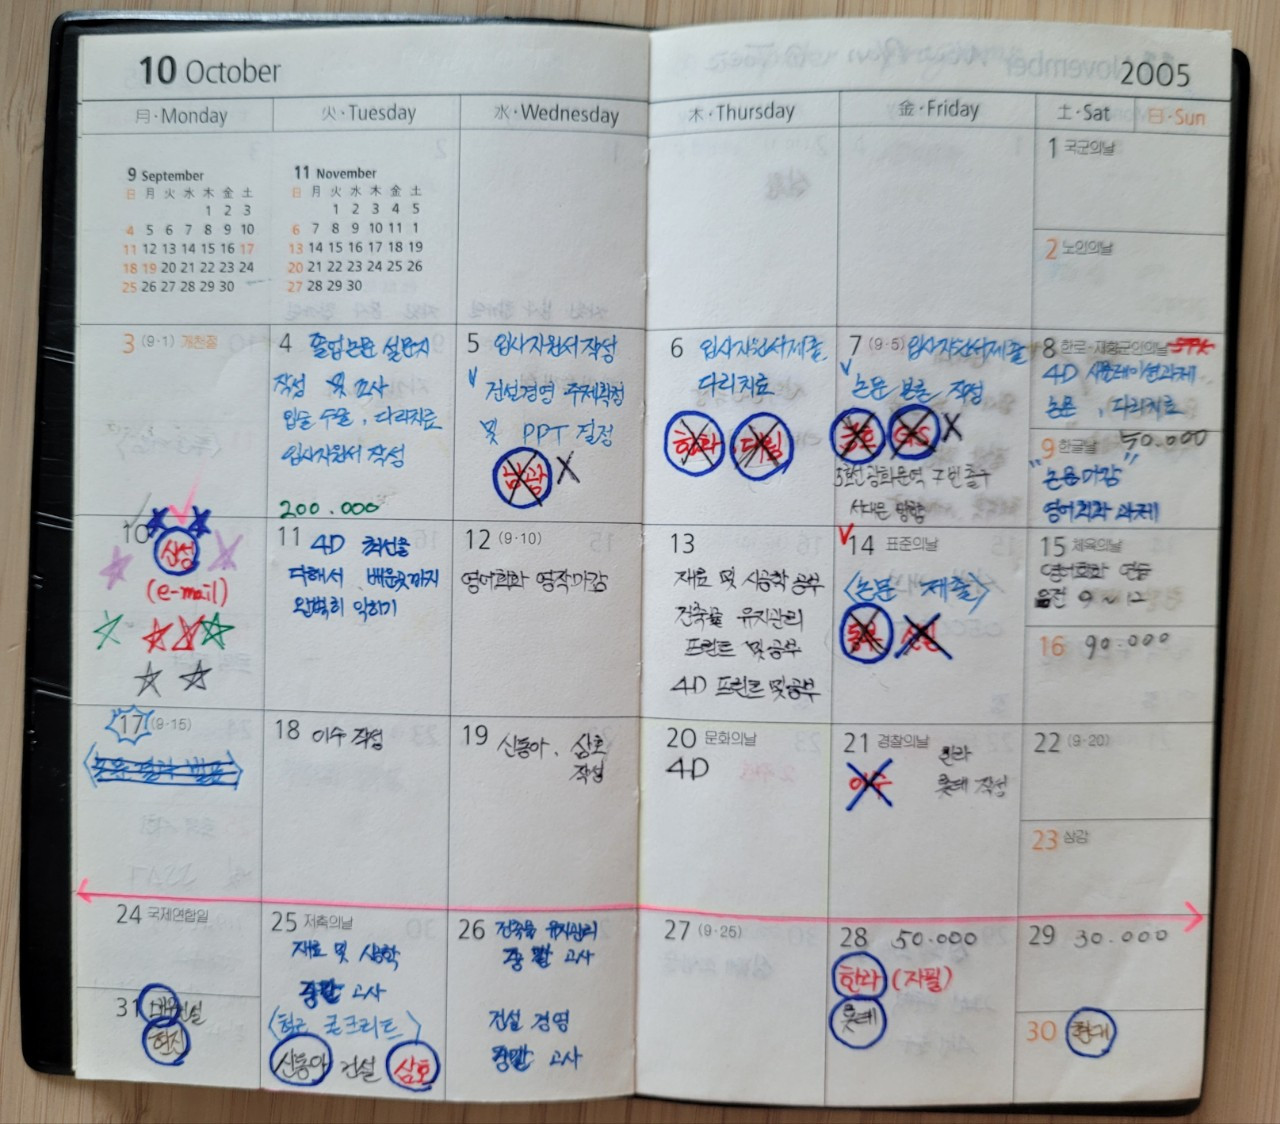 10 October
2005
月·Monday
火·Tuesday
水·Wednesday
木·Thursday
金·Friday
土·Sat
日·Sun
9 September
日 月 火 水 木 金 土
1 2 3
4 5 6 7 8 9 10
11 12 13 14 15 16 17
18 19 20 21 22 23 24
25 26 27 28 29 30
11 November
日 月 火 水 木 金 土
1 2 3 4 5
6 7 8 9 10 11 1
13 14 15 16 17 18 19
20 21 22 23 24 25 26
27 28 29 30
1 국군의날
2 노인의날
3 (9·1) 개천절
4 졸업논문 설문지
작성 및 조사
입술 수술, 다리치료
입사지원서 작성
200.000
5 입사지원서작성
건설경영 주제확정
및 PPT 결정
남광 X
6 입사지원서제출
다리치료
한화 대림
7 (9·5) 입사지원서제출
논문 본론 작성
금호 GS X
5호선 광화문역 7번출구
서대문 방향
8 한로·재향군인의날
4D 시뮬레이션과제
논문, 다리치료
9 한글날 50.000
"논문마감"
영어회화 과제
10
삼성
(e-mail)
11 4D 최선을
다해서 배운곳까지
완벽히 익히기
12 (9·10)
영어회화 영작마감
13
재료 및 시공학 공부
건축물 유지관리
프린트 및 공부
4D 프린트 및 공부
14 표준의날
〈논문 제출〉
동부
15 체육의날
영어회화 연습
오전 9~12
16 90.000
17 (9·15)
18 이수 작성
19 신동아, 삼호
작성
20 문화의날
4D
21 경찰의날 한라
이수 롯데 작성
22 (9·20)
23 상강
24 국제연합일
25 저축의날
재료 및 시공학
중간 고사
〈현근 콘크리트〉
신동아 건설 삼호
26 건축물 유지관리
중간 고사
건설 경영
중간 고사
27 (9·25)
28 50.000
한라 (자필)
롯데
29 30.000
30 현대
31
한진